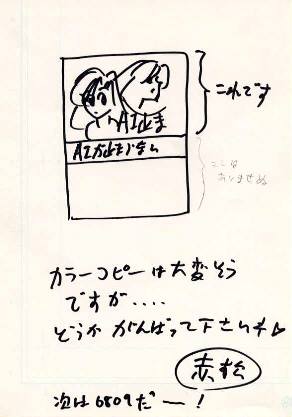 AI止ま
これです
AIが止まらない
ここは
ありませぬ
カラーコピーは大変そう
ですが‥‥
どうか がんばって下さいネ
赤松
次は6809だー!